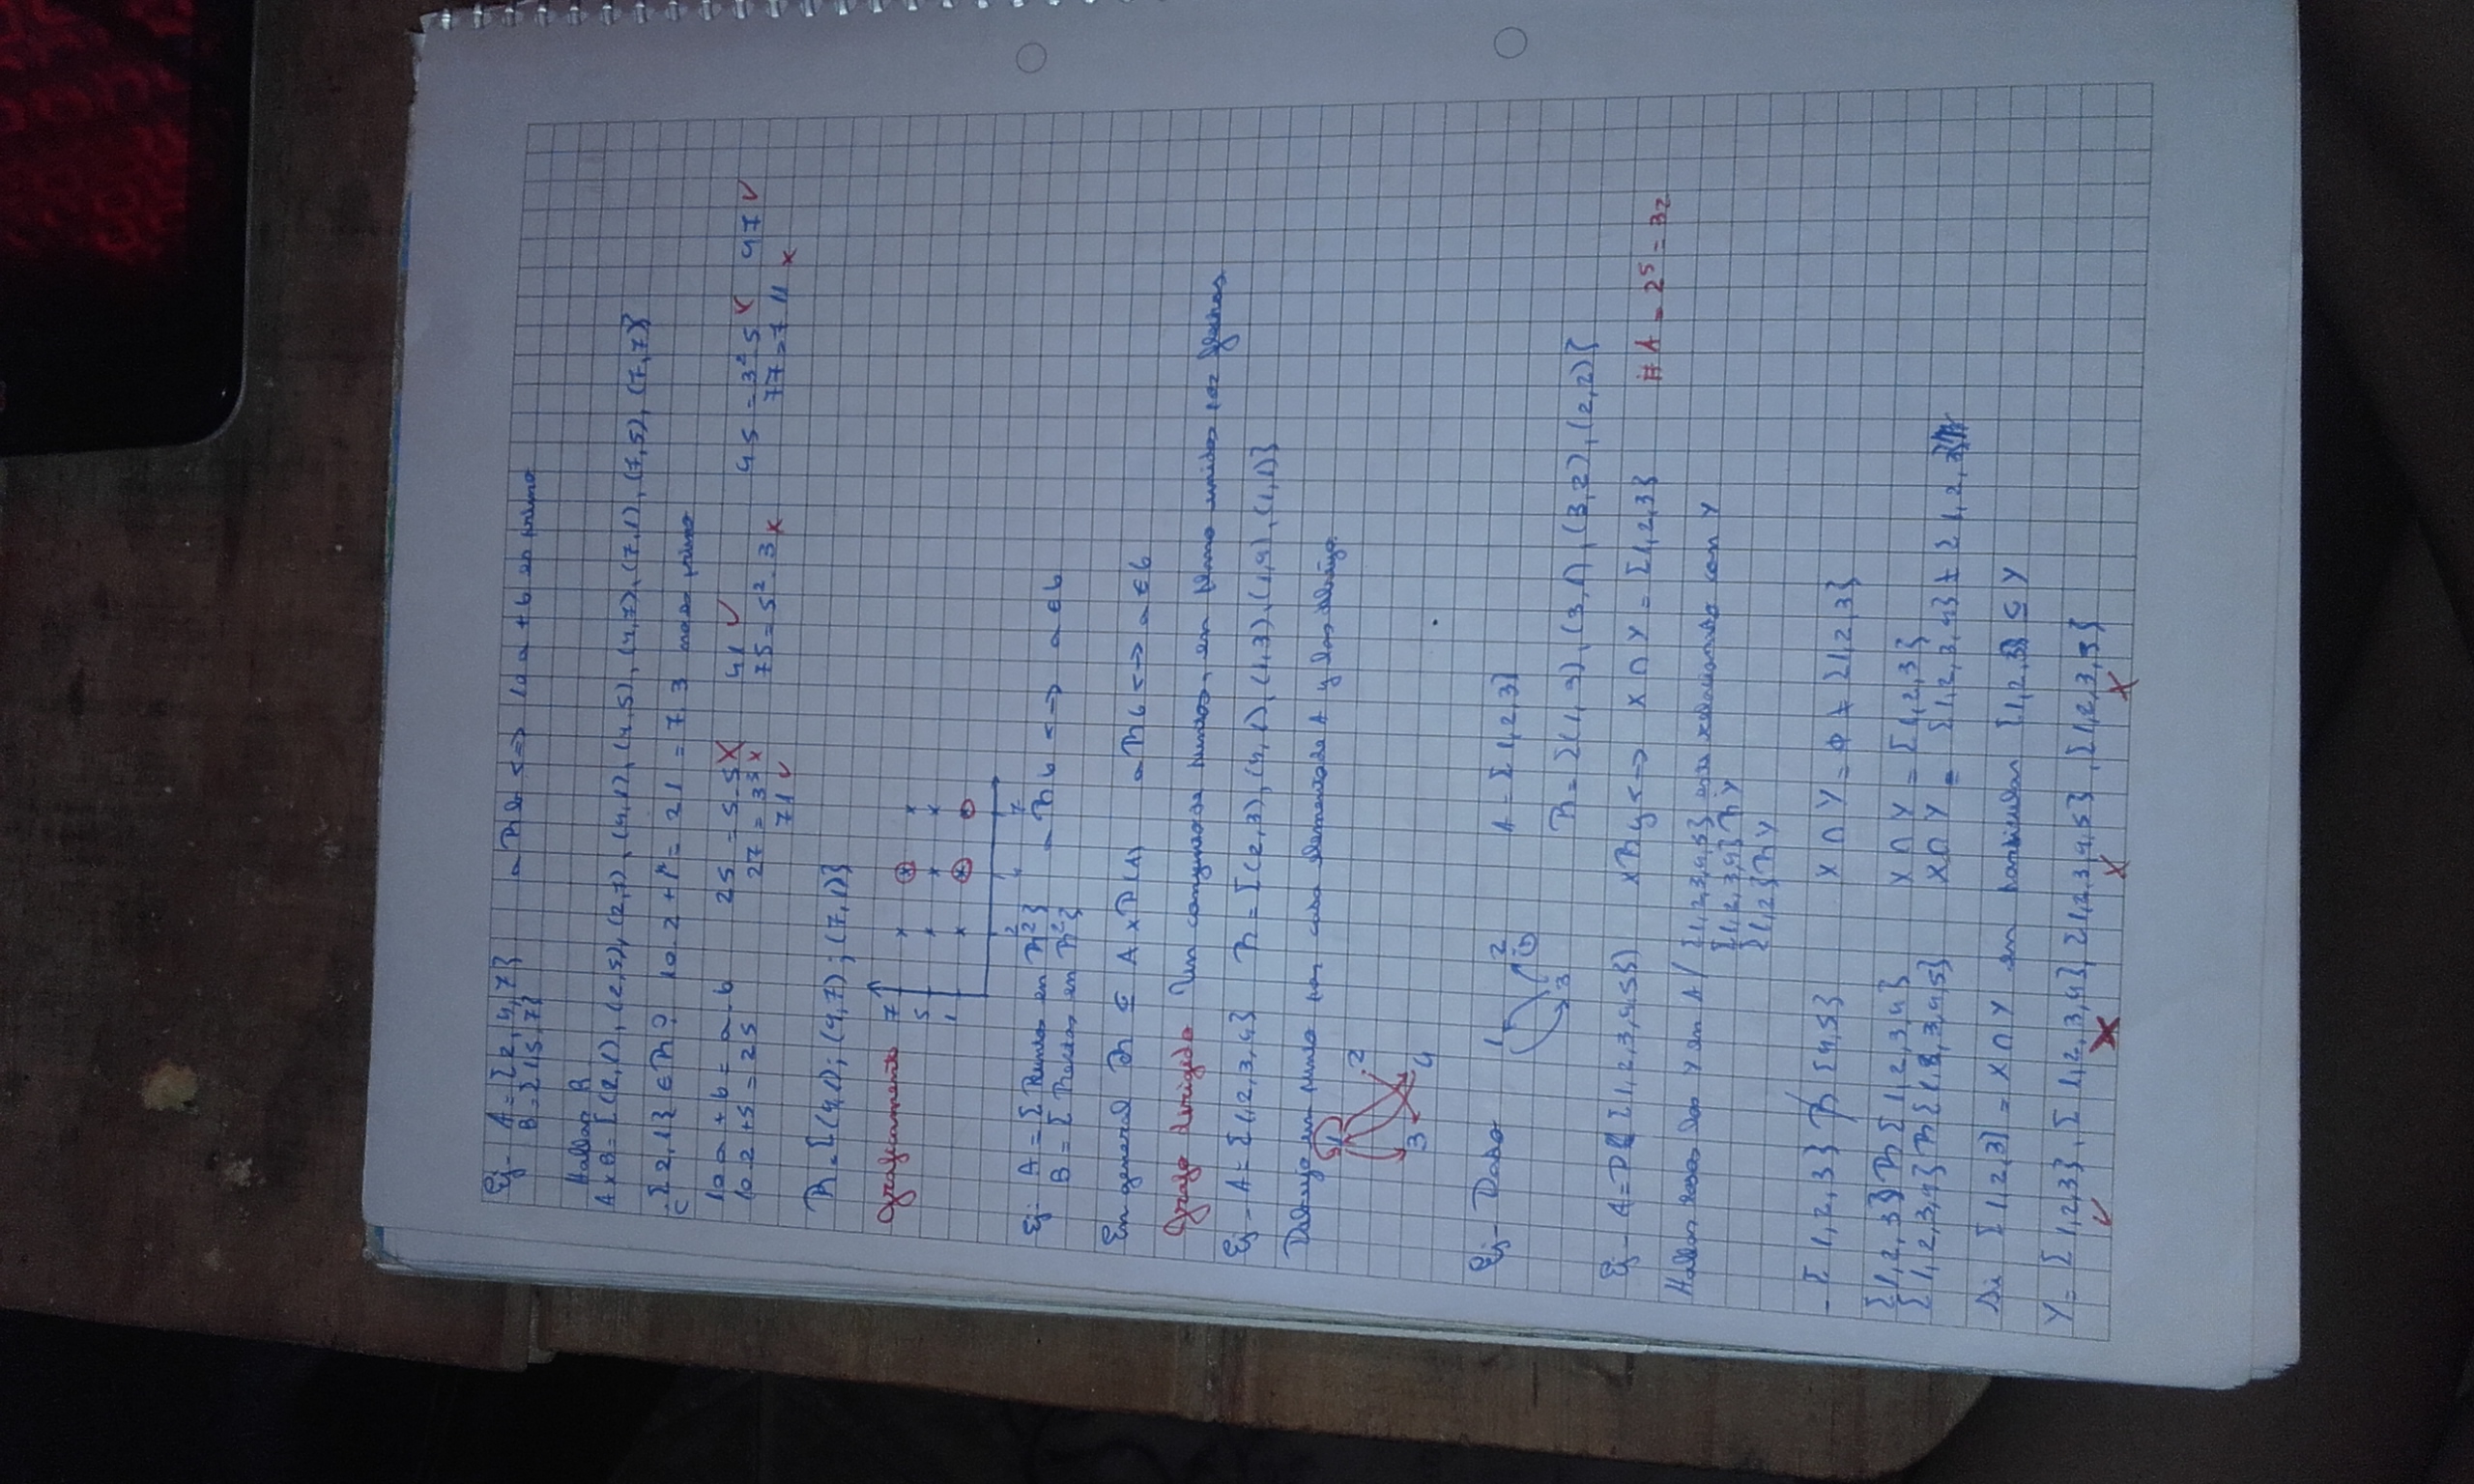 Ej- A = {2, 4, 7} a R b <-> 10 a + b es primo
B = {1,5,7}
Hallar R
A x B = {(2,1), (2,5), (2,7), (4,1), (4,5), (4,7), (7,1), (7,5), (7,7)}
{2,1} ∈ R? 10.2 + 1 = 21 = 7.3 no es primo
10 a + b = a.b 25 = 5.5 X 41 ✓ 45 = 3² 5 x 47 ✓
10.2 + 5 = 25 27 = 3³ x 75 = 5².3 x 77 = 7.11 x
71 ✓
R = {(4,1); (4,7); (7,1)}
Graficamente 7
5
1
2 4 7
Ej- A = {Puntos en R²} a R b <-> a ∈ b
B = {Rectas en R²}
En general R ⊆ A x P(A) a R b <-> a ∈ b
Grafo dirigido Un conjunto de puntos, en plano unidos por flechas
Ej- A = {1,2,3,4} R = {(2,3), (4,1), (1,3), (1,4), (1,1)}
Dibujo un punto por cada elemento de A y los
1
2
3 4
Ej- Dado 1 2 A = {1,2,3}
3 R = {(1,3), (3,1), (3,2), (2,2)}
Ej- A = P({1,2,3,4,5}) X R Y <-> X ∩ Y = {1,2,3} # A = 2⁵ = 32
Hallar todos los Y en A / {1,2,3,4,5} esta relacionado con Y
{1,2,3,4} R Y
{1,2} R Y
- {1,2,3} R̸ {4,5} X ∩ Y = ϕ ≠ {1,2,3}
{1,2,3} R {1,2,3,4} X ∩ Y = {1,2,3}
{1,2,3,4} R {1,2,3,4,5} X ∩ Y = {1,2,3,4} ≠ {1,2,3}
Si {1,2,3} = X ∩ Y en particular {1,2,3} ⊆ Y
Y = {1,2,3}, {1,2,3,4}, {1,2,3,4,5}, {1,2,3,5}
✓ X X X